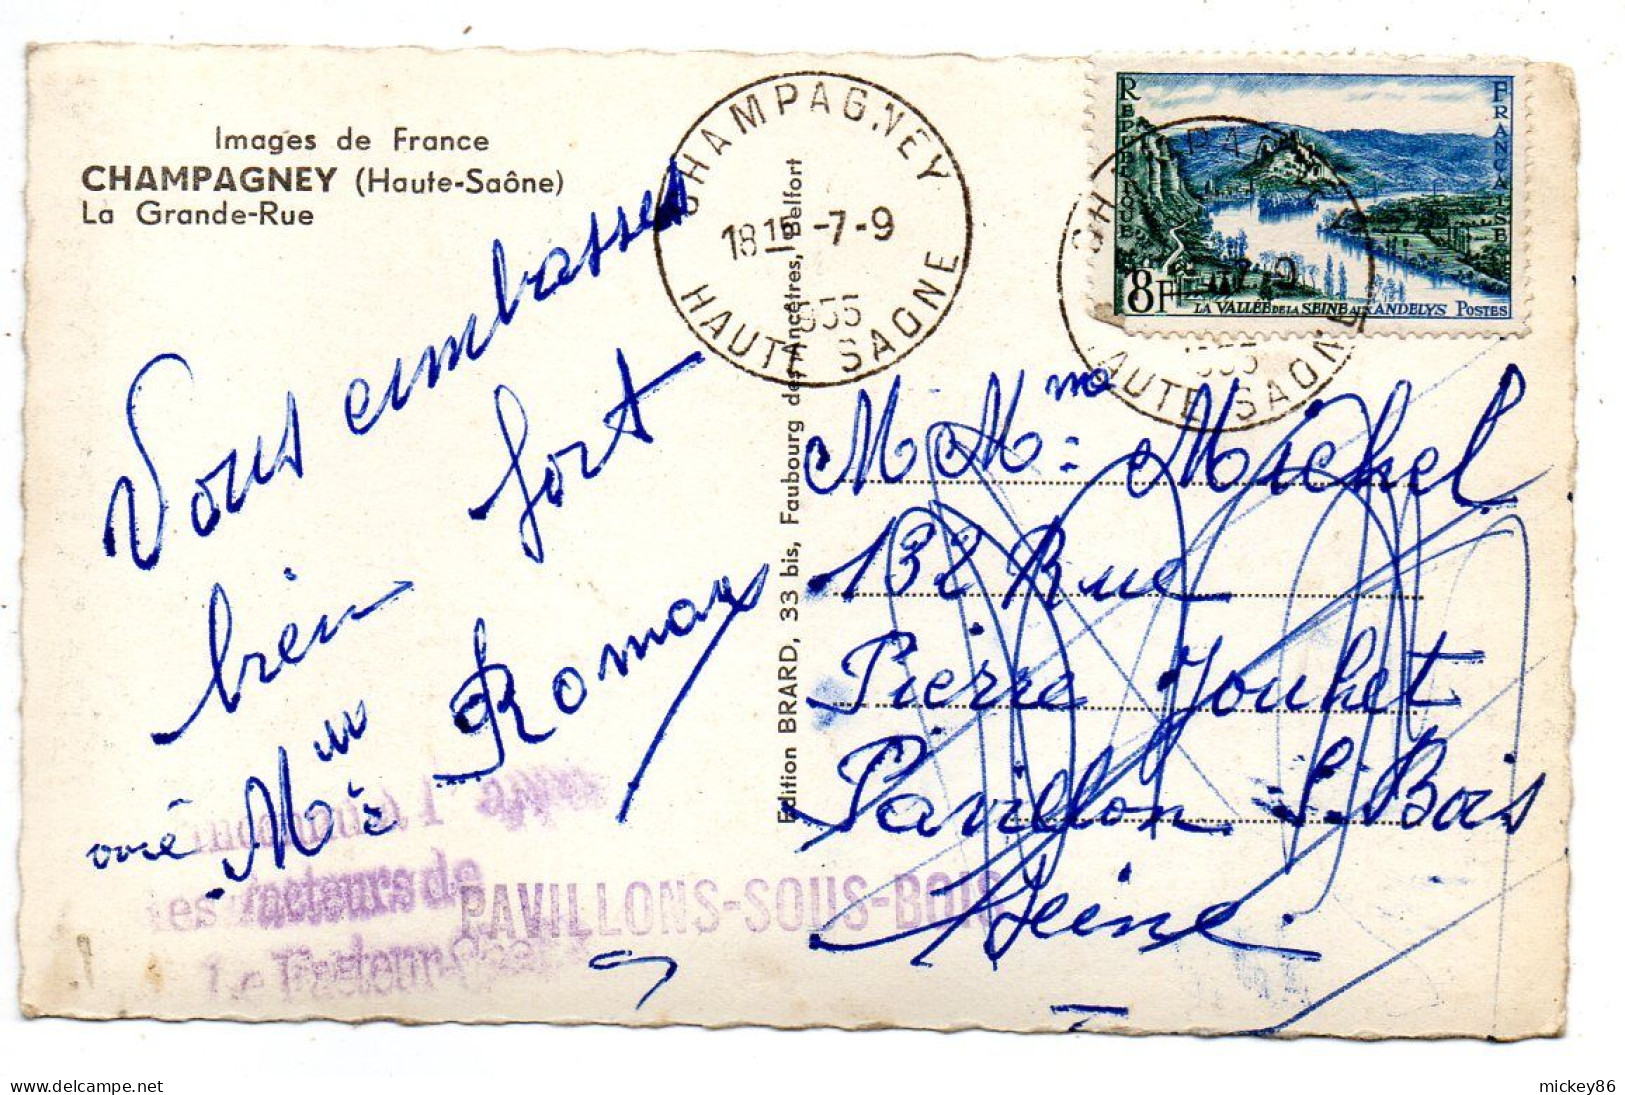 Images de France
CHAMPAGNEY (Haute-Saône)
La Grande-Rue
Vous embrasses
bien fort
Mme Roman
CHAMPAGNEY
18 15 -7-9
1955
HAUTE SAONE
Edition BRARD, 33 bis, Faubourg des Ancêtres, Belfort
REPUBLIQUE
FRANÇAISE
8F
LA VALLÉE DE LA SEINE AUX ANDELYS POSTES
CHAMPAGNEY
7-9
1955
HAUTE SAONE
M Mme Michel
132 Rue
Pierre Jouhet
Pavillon S. Bois
Seine
Inconnu à l'appel
les facteurs de
PAVILLONS-SOUS-BOIS
Le Facteur-Chef
mickey86
www.delcampe.net